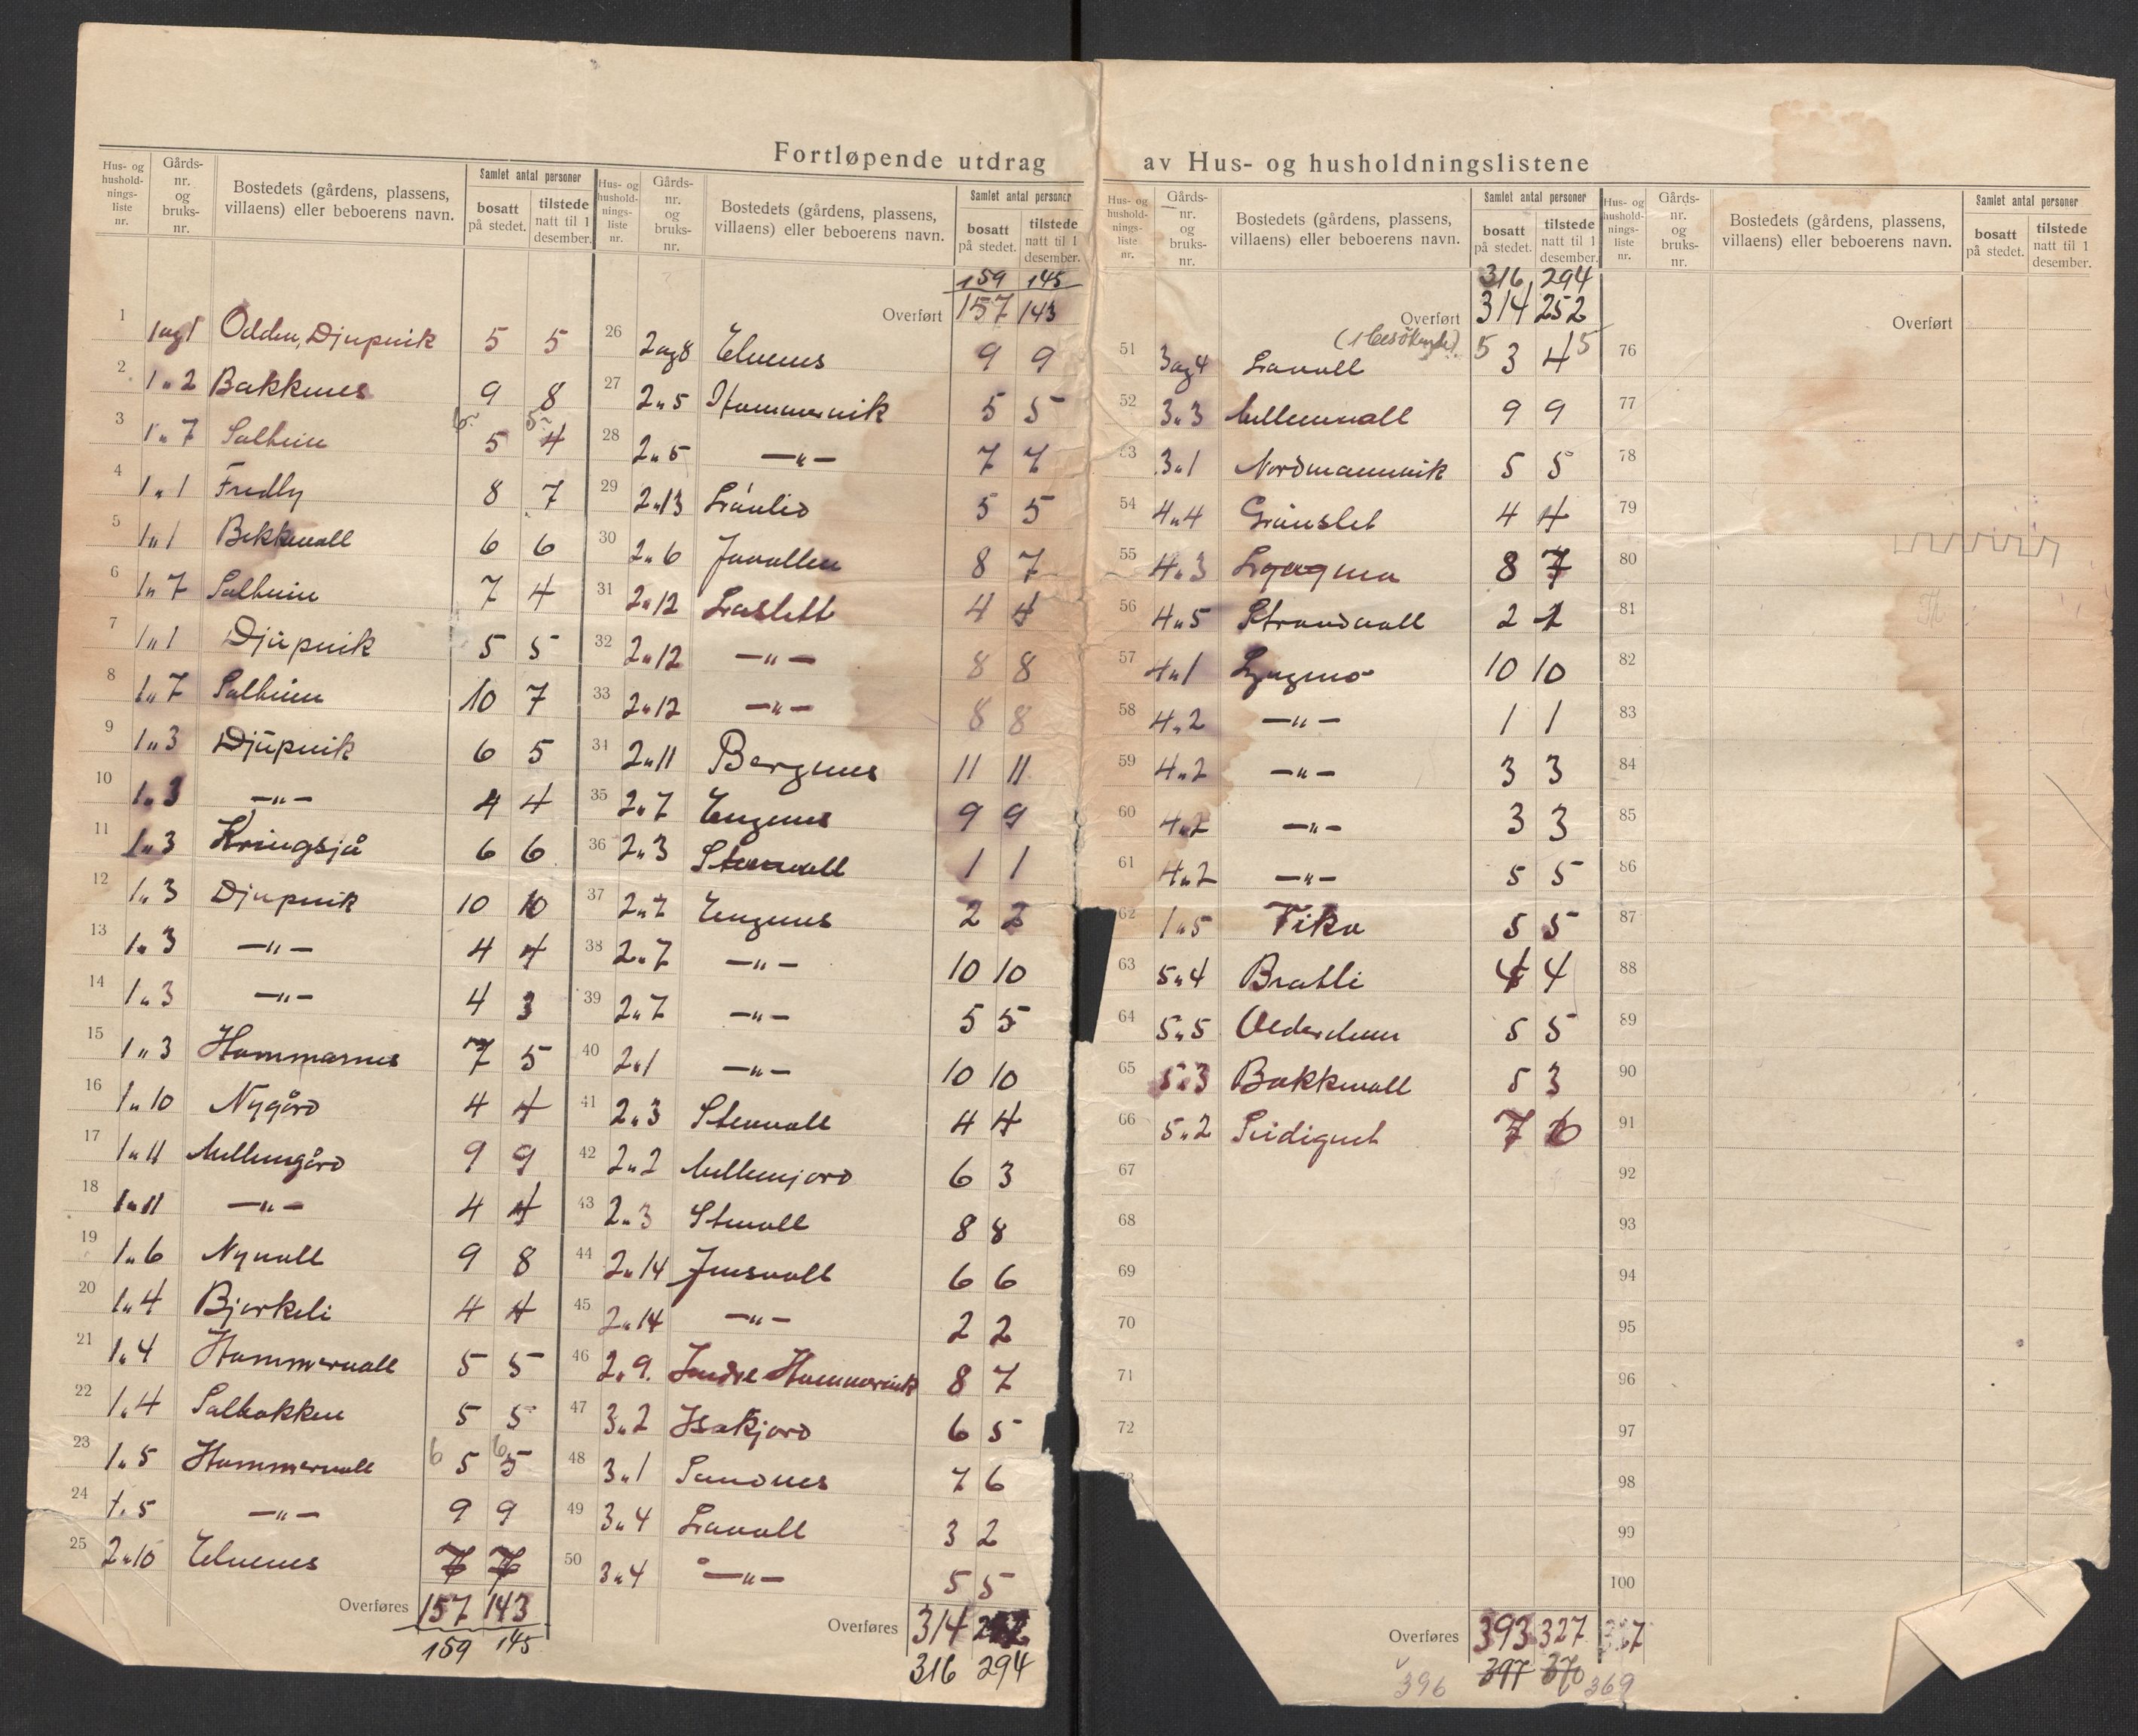 Fortløpende utdrag av Hus- og husholdningslistene
Hus- og hushold- nings- liste nr. | Gårds- nr. og bruks- nr. | Bostedets (gårdens, plassens, villaens) eller beboerens navn. | Samlet antal personer | bosatt på stedet. | tilstede natt til 1 desember.
1 | 1 og 5 | Odden, Djupvik | 5 | 5
2 | 1 „ 2 | Bakkenes | 9 | 8
3 | 1 „ 7 | Solheim | 6 5 | 5 4
4 | 1 „ 1 | Fredly | 8 | 7
5 | 1 „ 1 | Bekkevoll | 6 | 6
6 | 1 „ 7 | Solheim | 7 | 4
7 | 1 „ 1 | Djupvik | 5 | 5
8 | 1 „ 7 | Solheim | 10 | 7
9 | 1 „ 3 | Djupvik | 6 | 5
10 | 1 „ 3 | —„— | 4 | 4
11 | 1 „ 3 | Kringsjå | 6 | 6
12 | 1 „ 3 | Djupvik | 10 | 10
13 | 1 „ 3 | —„— | 4 | 4
14 | 1 „ 3 | —„— | 4 | 3
15 | 1 „ 3 | Hammarnes | 7 | 5
16 | 1 „ 10 | Nygård | 4 | 4
17 | 1 „ 11 | Mellemgård | 9 | 9
18 | 1 „ 11 | —„— | 4 | 4
19 | 1 „ 6 | Nyvoll | 9 | 8
20 | 1 „ 4 | Bjørkeli | 4 | 4
21 | 1 „ 4 | Hammervoll | 5 | 5
22 | 1 „ 4 | Solbakken | 5 | 5
23 | 1 „ 5 | Hammervoll | 6 5 | 6 5
24 | 1 „ 5 | —„— | 9 | 9
25 | 2 „ 10 | Elvenes | 7 | 7
Overføres | 157 | 143
159 | 145
Hus- og hushold- nings- liste nr. | Gårds- nr. og bruks- nr. | Bostedets (gårdens, plassens, villaens) eller beboerens navn. | Samlet antal personer | bosatt på stedet. | tilstede natt til 1 desember.
159 | 145
Overført | 157 | 143
26 | 2 og 8 | Elvenes | 9 | 9
27 | 2 „ 5 | Hammervik | 5 | 5
28 | 2 „ 5 | —„— | 7 | 7
29 | 2 „ 13 | Grønlid | 5 | 5
30 | 2 „ 6 | Javollen | 8 | 7
31 | 2 „ 12 | Løslett | 4 | 4
32 | 2 „ 12 | —„— | 8 | 8
33 | 2 „ 12 | —„— | 8 | 8
34 | 2 „ 11 | Bergnes | 11 | 11
35 | 2 „ 7 | Engnes | 9 | 9
36 | 2 „ 3 | Stenvoll | 1 | 1
37 | 2 „ 7 | Engnes | 2 | 2
38 | 2 „ 7 | —„— | 10 | 10
39 | 2 „ 7 | —„— | 5 | 5
40 | 2 „ 1 | —„— | 10 | 10
41 | 2 „ 3 | Stenvoll | 4 | 4
42 | 2 „ 2 | Mellemjord | 6 | 3
43 | 2 „ 3 | Stenvoll | 8 | 8
44 | 2 „ 14 | Jensvoll | 6 | 6
45 | 2 „ 14 | —„— | 2 | 2
46 | 2 „ 9. | Indre Hammervik | 8 | 7
47 | 3 „ 2 | Isakjord | 6 | 5
48 | 3 „ 1 | Sandnes | 7 | 6
49 | 3 „ 4 | Løvoll | 3 | 2
50 | 3 „ 4 | —„— | 5 | 5
Overføres | 314 | 252
316 | 294
Hus- og hushold- nings- liste nr. | Gårds- nr. og bruks- nr. | Bostedets (gårdens, plassens, villaens) eller beboerens navn. | Samlet antal personer | bosatt på stedet. | tilstede natt til 1 desember.
316 | 294
Overført | 314 | 252
51 | 3 og 4 | Løvoll (1 besøkende) | 5 3 | 4 5
52 | 3 „ 3 | Mellemvoll | 9 | 9
53 | 3 „ 1 | Nordmannvik | 5 | 5
54 | 4 „ 4 | Grønslet | 4 | 4
55 | 4 „ 3 | Lyngmo | 8 | 7
56 | 4 „ 5 | Strandvoll | 2 | 2
57 | 4 „ 1 | Lyngmo | 10 | 10
58 | 4 „ 2 | —„— | 1 | 1
59 | 4 „ 2 | —„— | 3 | 3
60 | 4 „ 2 | —„— | 3 | 3
61 | 4 „ 2 | —„— | 5 | 5
62 | 1 „ 5 | Vika | 5 | 5
63 | 5 „ 4 | Bratli | 4 | 4
64 | 5 „ 5 | Olderheim | 5 | 5
65 | 5 „ 3 | Bakkevoll | 5 | 3
66 | 5 „ 2 | | 7 | 6
67
68
69
70
71
72
Overføres | 393 | 327 | 327
396 | 397 | 370 | 369
Hus- og hushold- nings- liste nr. | Gårds- nr. og bruks- nr. | Bostedets (gårdens, plassens, villaens) eller beboerens navn. | Samlet antal personer | bosatt på stedet. | tilstede natt til 1 desember.
Overført
76
77
78
79
80
81
82
83
84
85
86
87
88
89
90
91
92
93
94
95
96
97
98
99
100